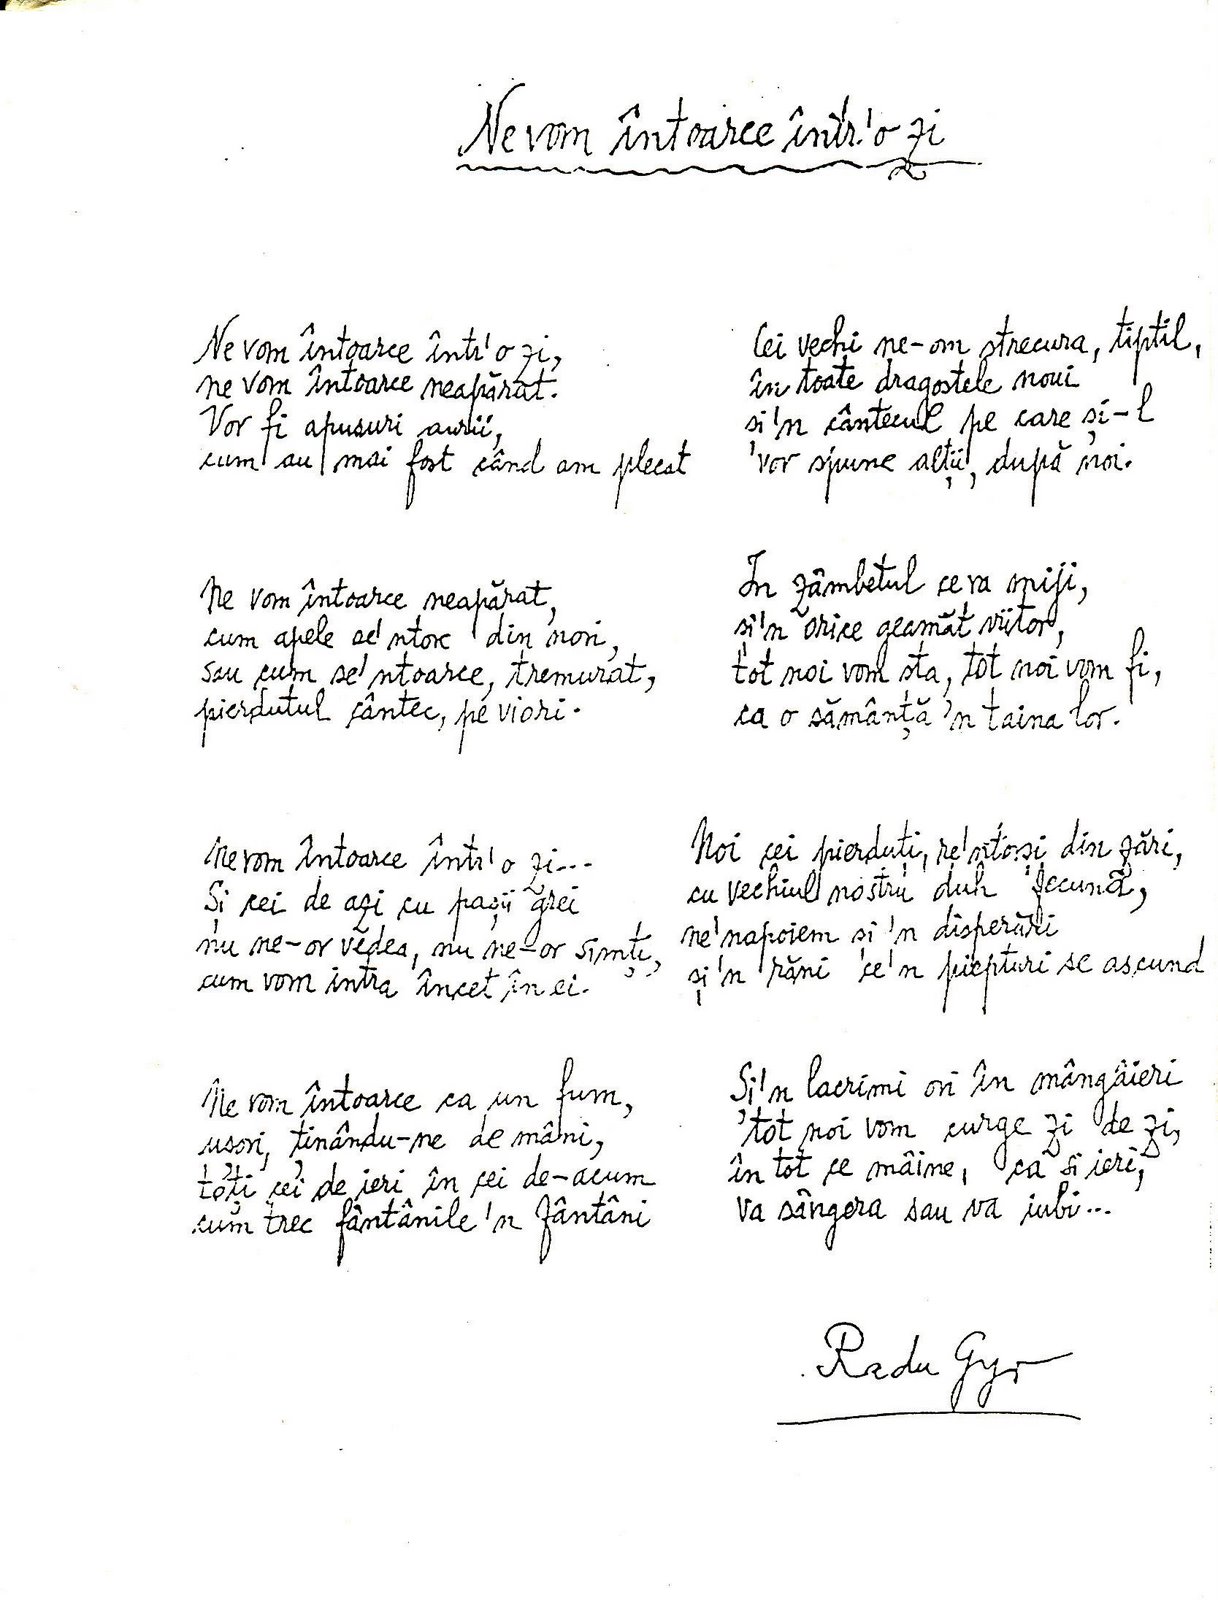 Ne vom întoarce într'o zi
Ne vom întoarce într'o zi,
ne vom întoarce neapărat.
Vor fi apusuri aurii,
cum au mai fost când am plecat
Ne vom întoarce neapărat,
cum apele se'ntorc din nori,
sau cum se'ntoarce, tremurat,
pierdutul cântec, pe viori.
Ne vom întoarce într'o zi...
Și cei de azi cu pașii grei
nu ne-or vedea, nu ne-or simți,
cum vom intra încet în ei.
Ne vom întoarce ca un fum,
ușori, ținându-ne de mâni,
toți cei de ieri în cei de-acum
cum trec fântânile'n fântâni
Cei vechi ne-om strecura, tiptil,
în toate dragostele noui
si'n cântecul pe care și-l
vor spune alții, după noi.
In zâmbetul ce va miji,
și'n orice geamăt viitor,
tot noi vom sta, tot noi vom fi,
ca o sămânță'n taina lor.
Noi cei pierduti, re'ntorși din zări,
cu vechiul nostru duh fecund,
ne'napoiem și'n disperări
și'n răni ce'n piepturi se ascund
Si'n lacrimi ori în mângâieri
tot noi vom curge zi de zi,
în tot ce mâine, ca si ieri,
va sângera sau va iubi...
Radu Gyr